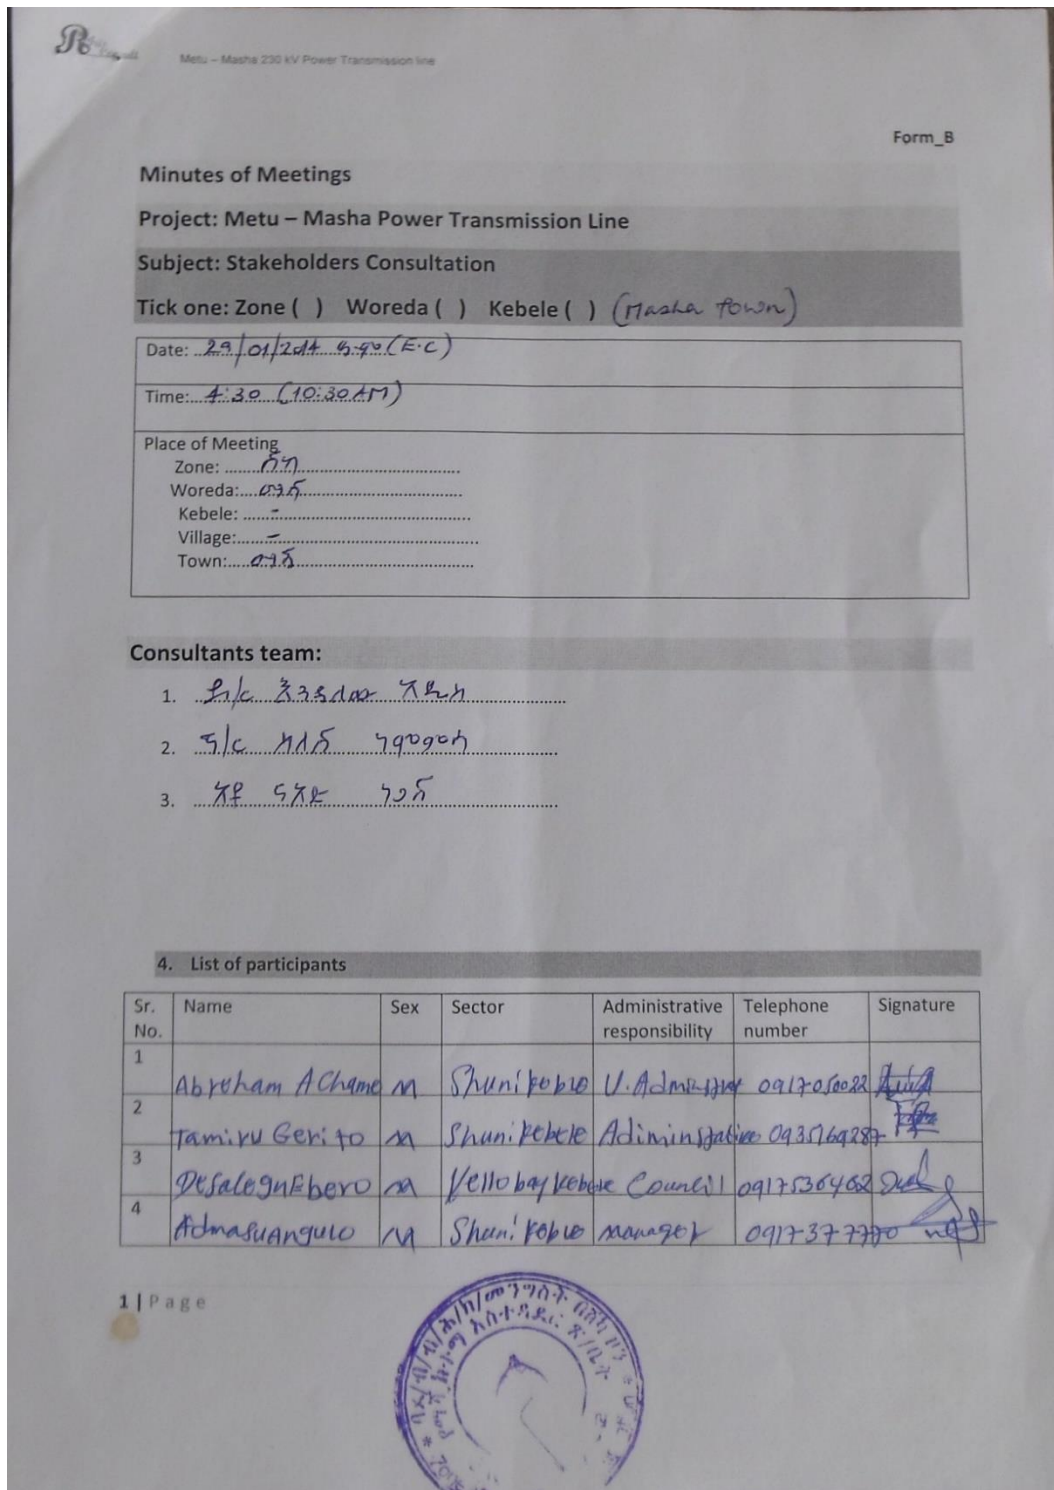 Metu – Masha 230 kV Power Transmission line
Form_B
Minutes of Meetings
Project: Metu – Masha Power Transmission Line
Subject: Stakeholders Consultation
Tick one: Zone ( ) Woreda ( ) Kebele ( ) (Masha town)
Date: 29/01/2014 ዓ.ም (E.C)
Time: 4:30 (10:30 AM)
Place of Meeting
Zone: ሸካ
Woreda: ማሻ
Kebele: -
Village: -
Town: ማሻ
Consultants team:
1. ዶ/ር እንዳለው አዲስ
2.
3. አቶ
4. List of participants
Sr. No. Name Sex Sector Administrative responsibility Telephone number Signature
1 Abreham AChame M Shuni kebele V. 0917050022
2 Tamiru Gerito M Shuni kebele 0935169287
3 Desalegn Ebero M Yellobay kebele Council 0917536462
4 Admasu Angulo M Shuni kebele manager
1 | Page